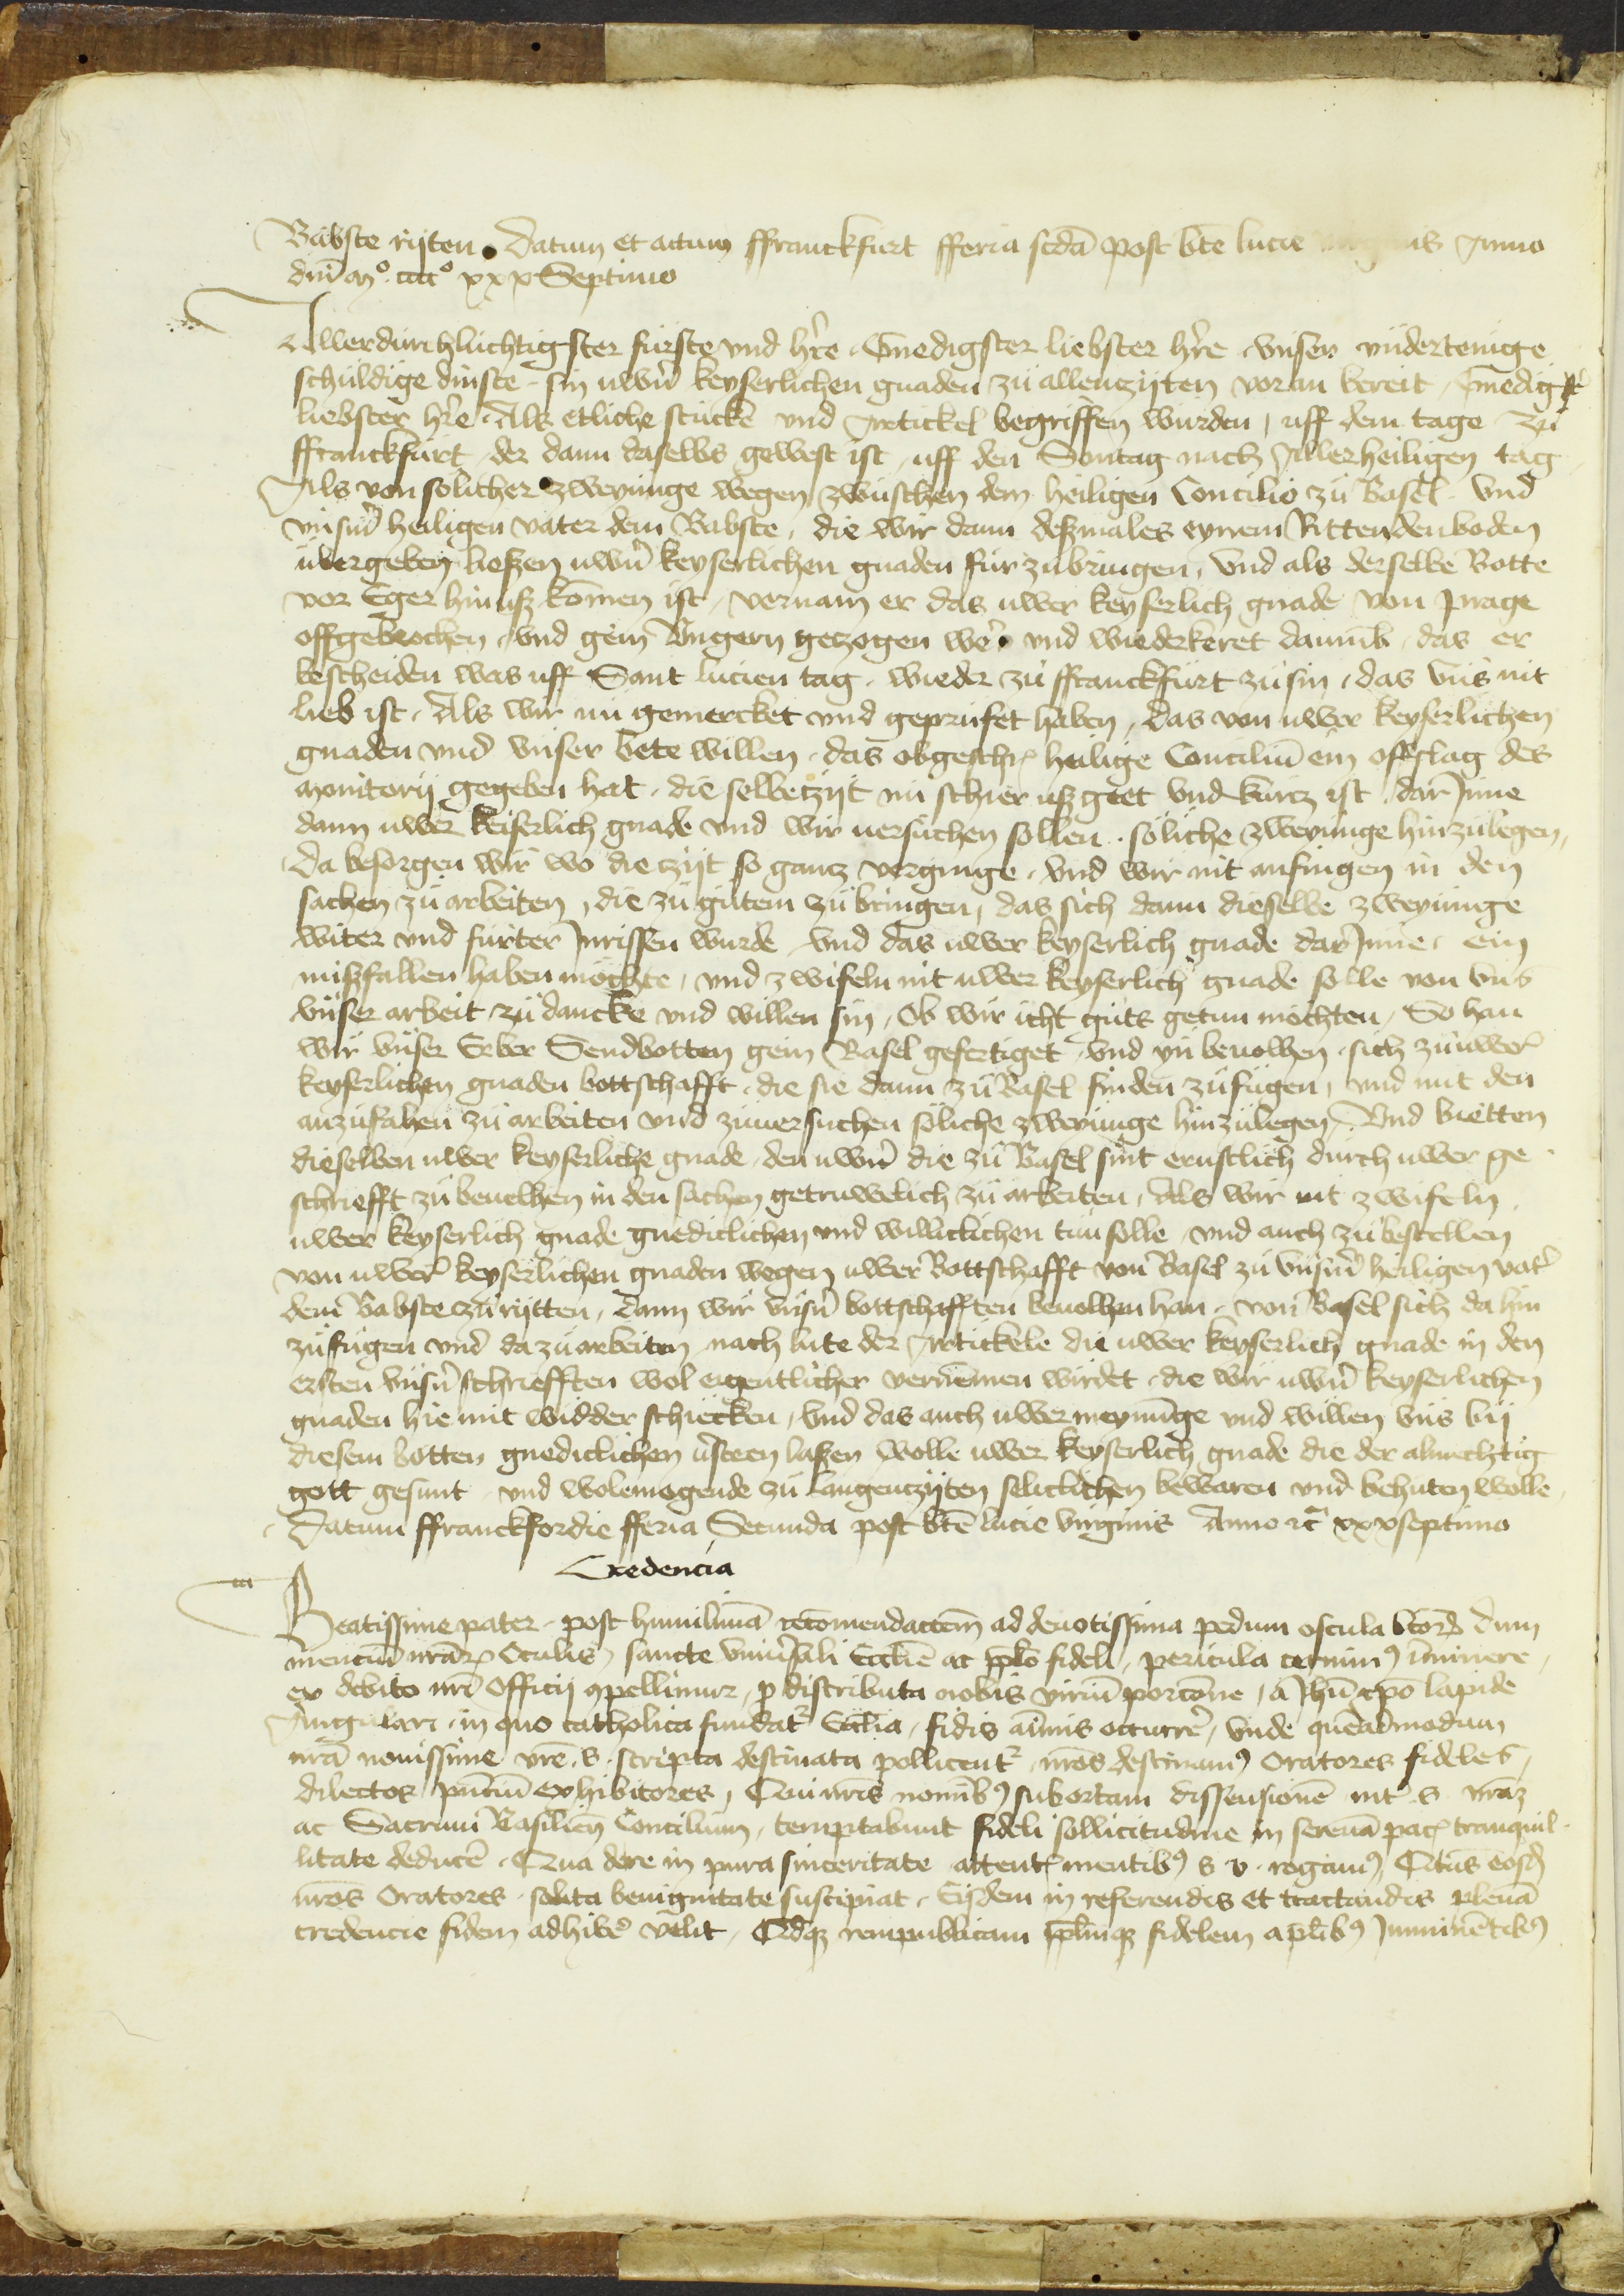 Babste rijten. Datum et actum ffranckfurt fferia scdā post bte lucie Anno
dnī mo. cccco xxx Septimo
Allerdurchluchtigster furste vnd hr̄e. Gnedigster liebster hr̄e. vnser vndertenige
schuldige dinste. sin uwrn̄ keyserlichen gnaden zu allentzijten voran bereit. Gnedigster
liebster hr̄e. Als etliche stucke vnd Artickel begriffen wurden, uff dem tage zu
ffranckfurt der dann daselbs gewest ist, uff den Sontag nach Allerheiligen tag
Als von solicher zweyunge wegen zwuschen dem heiligen Concilio zu Basel. vnd
vnsm̄ heiligen vater dem Babste, die wir dann deßmales eynem Rittenden boden
ubergeben ließen uwrn̄ keyserlichen gnaden fur zubringen, vnd als derselbe Botte
vor Eger hinuß komen ist, vernam er das uwer keyserlich gnade von prage
offgebrochen, vnd gein Vngern getzogen wer̄. vnd wiederkeret darumb, das er
bescheiden was uff Sant lucien tag. wieder zu ffranckfurt zu sin, das vns nit
lieb ist, Als wir nu gemercket vnd geprufet haben, das von uwer keyserlichen
gnaden vnd vnser bete willen, das obgeschr̄ heilige Conciliū ein offslag des
monitorij gegeben hat, die selbe tzijt nu schier uß geet vnd kurcz ist, dar Inne
dann uwer keiserlich gnade vnd wir uersuchen sollen. soliche zweyunge hinzulegen,
Da besorgen wir wo die tzijt so gantz vergienge, vnd wir nit anfiengen in den
sachen zu arbeiten, die zu gutem zu bringen, das sich dann dieselbe zweyunge
witer vnd furter Inrissen wurde vnd das uwer keyserlich gnade dar Inne, ein
mißfallen haben mochte, vnd zwifeln nit uwer keyserlich gnade solle von vns
vnser arbeit zu dancke vnd willen sin, Ob wir icht guts getun mochten, So han
wir vnser Erber Sendbotten gein Basel gefertiget, vnd yn beuolhen, sich zu uwer̄
keyserlichen gnaden bottschafft, die sie dann zu Basel finden zufugen, vnd mit den
anzufahen zu arbeiten vnd zuuersuchen soliche zweyunge hinzulegen, Vnd bietten
dieselben uwer keyserliche gnade, den uwrn̄ die zu Basel sint ernstlich durch uwer ge
schriefft zu beuelhen in den sachen getruwelich zu arbeiten, Als wir nit zwifeln
uwer keyserlich gnade gnediclichen vnd williclichen tun solle vnd auch zu bestellen
von uwer̄ keyserlichen gnaden wegen uwer Bottschafft von Basel zu vnsm̄ heiligen vat̄
dem Babste zu rijtten, dann wir vnsn̄ bottschafften beuolhen han, von Basel sich da hin
zufugen vnd da zu arbeiten nach lute der Artickele die uwer keyserlich gnade in den
ersten vnsn̄ schriefften wol eigentlicher vernemen wirdet, die wir uwrn̄ keyserlichen
gnaden hie mit widder schiecken, vnd das auch uwer meynunge vnd willen vns bij
diesem botten gnediclichen v̄steen laßen wolle uwer keyserlich gnade die der almechtig
gott gesunt vnd wolemogende zu langentzijten seliclichen bewaren vnd behuten wolle
Datum ffranckfordie fferia Secunda post btē lucie virginis Anno rc̄ xxxseptimo
Credencia
Beatissime pater post humilimā recomendacōem ad deuotissima pedum oscula btor̄ dum
mencium nrār̄ Oculis, sancte vniu̅sali Eccliē ac pplo fideli, pericula cernimꝰ īminere,
ex debito nrī Officij ꝯpellimur, ꝓ distributa nobis viriū porcōne, a Jhū xpō lapide
Angulari, in quo catholica fundat̄ Ecclīa, fidis aīmis occurrē, vnde quēadmodum
nrā nouissime vrē. s. scripta destinata pollicent̄, nrōs destinamꝰ Oratores fideles,
dilectos pn̄tiū exhibitores, Qui nrīs nomībꝰ subortam dissensionē int̄ .s. vrā3
ac Sacrum Basilien̄ Concilium, temptabunt fideli sollicitudine in serenā pac̄ tranquil-
litate deducē. Qua de re in pura sinceritate attent̄ mentibꝰ s v. rogamꝰ, Qtus eosd̄
nrōs Oratores solita benignitate suscipiat, Eisdem in referendis et tractandis plenā
credencie fidem adhibē velit, Qdq3 rempublicam pplmq3 fidelem a plibꝰ Imminētibꝰ